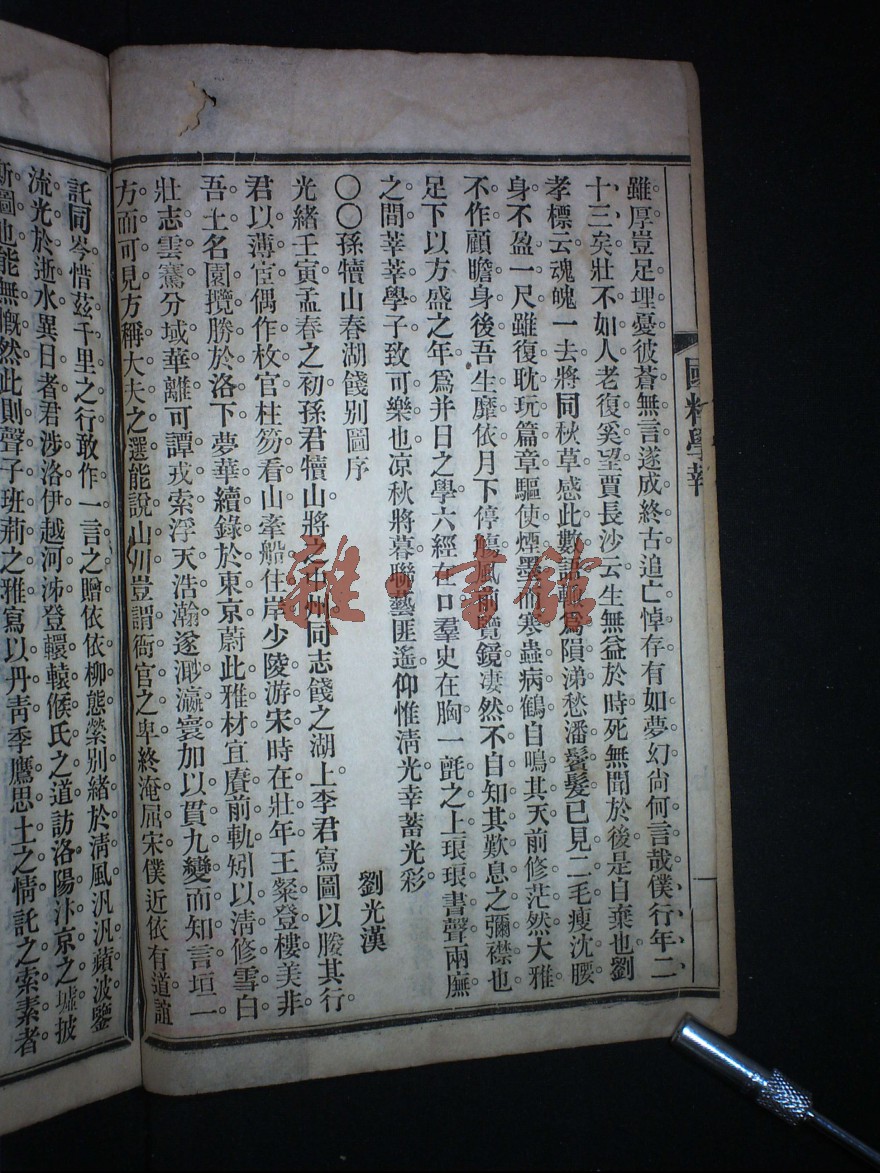 國粹學報
雖厚豈足埋憂彼蒼無言遂成終古追亡悼存有如夢幻尙何言哉僕行年二
十三矣壯不如人老復奚望賈長沙云生無益於時死無聞於後是自棄也劉
孝標云魂魄一去將同秋草感此數語輒爲隕涕愁潘鬢髮已見二毛瘦沈腰
身不盈一尺雖復耽玩篇章驅使煙墨而寒蟲病鶴自鳴其天前修茫然大雅
不作顧瞻身後吾生靡依月下停觴風前覽鏡凄然不自知其歎息之彌襟也
足下以方盛之年爲并日之學六經在口羣史在胸一氈之上琅琅書聲兩廡
之間莘莘學子致可樂也凉秋將暮聯藝匪遙仰惟淸光幸蓄光彩
〇〇孫犢山春湖餞别圖序
劉光漢
光緒壬寅孟春之初孫君犢山將之中州同志餞之湖上李君寫圖以媵其行
君以薄宦偶作枚官柱笏看山牽船住岸少陵游宋時在壯年王粲登樓美非
吾土名園攬勝於洛下夢華續錄於東京蔚此雅材宜賡前軌矧以淸修雪白
壯志雲騫分域華離可譚戎索浮天浩瀚遂溯瀛寰加以貫九變而知言垣一
方而可見方稱大夫之選能說山川豈謂衙官之卑終淹屈宋僕近依有道誼
託同岑惜茲千里之行敢作一言之贈依依柳態縈别緒於淸風汎汎蘋波鑒
流光於逝水異日者君涉洛伊越河洓登轘轅緱氏之道訪洛陽汴京之墟披
斯圖也能無慨然此則聲子班荊之雅寫以丹靑季鷹思土之情託之索素者
雜·書館